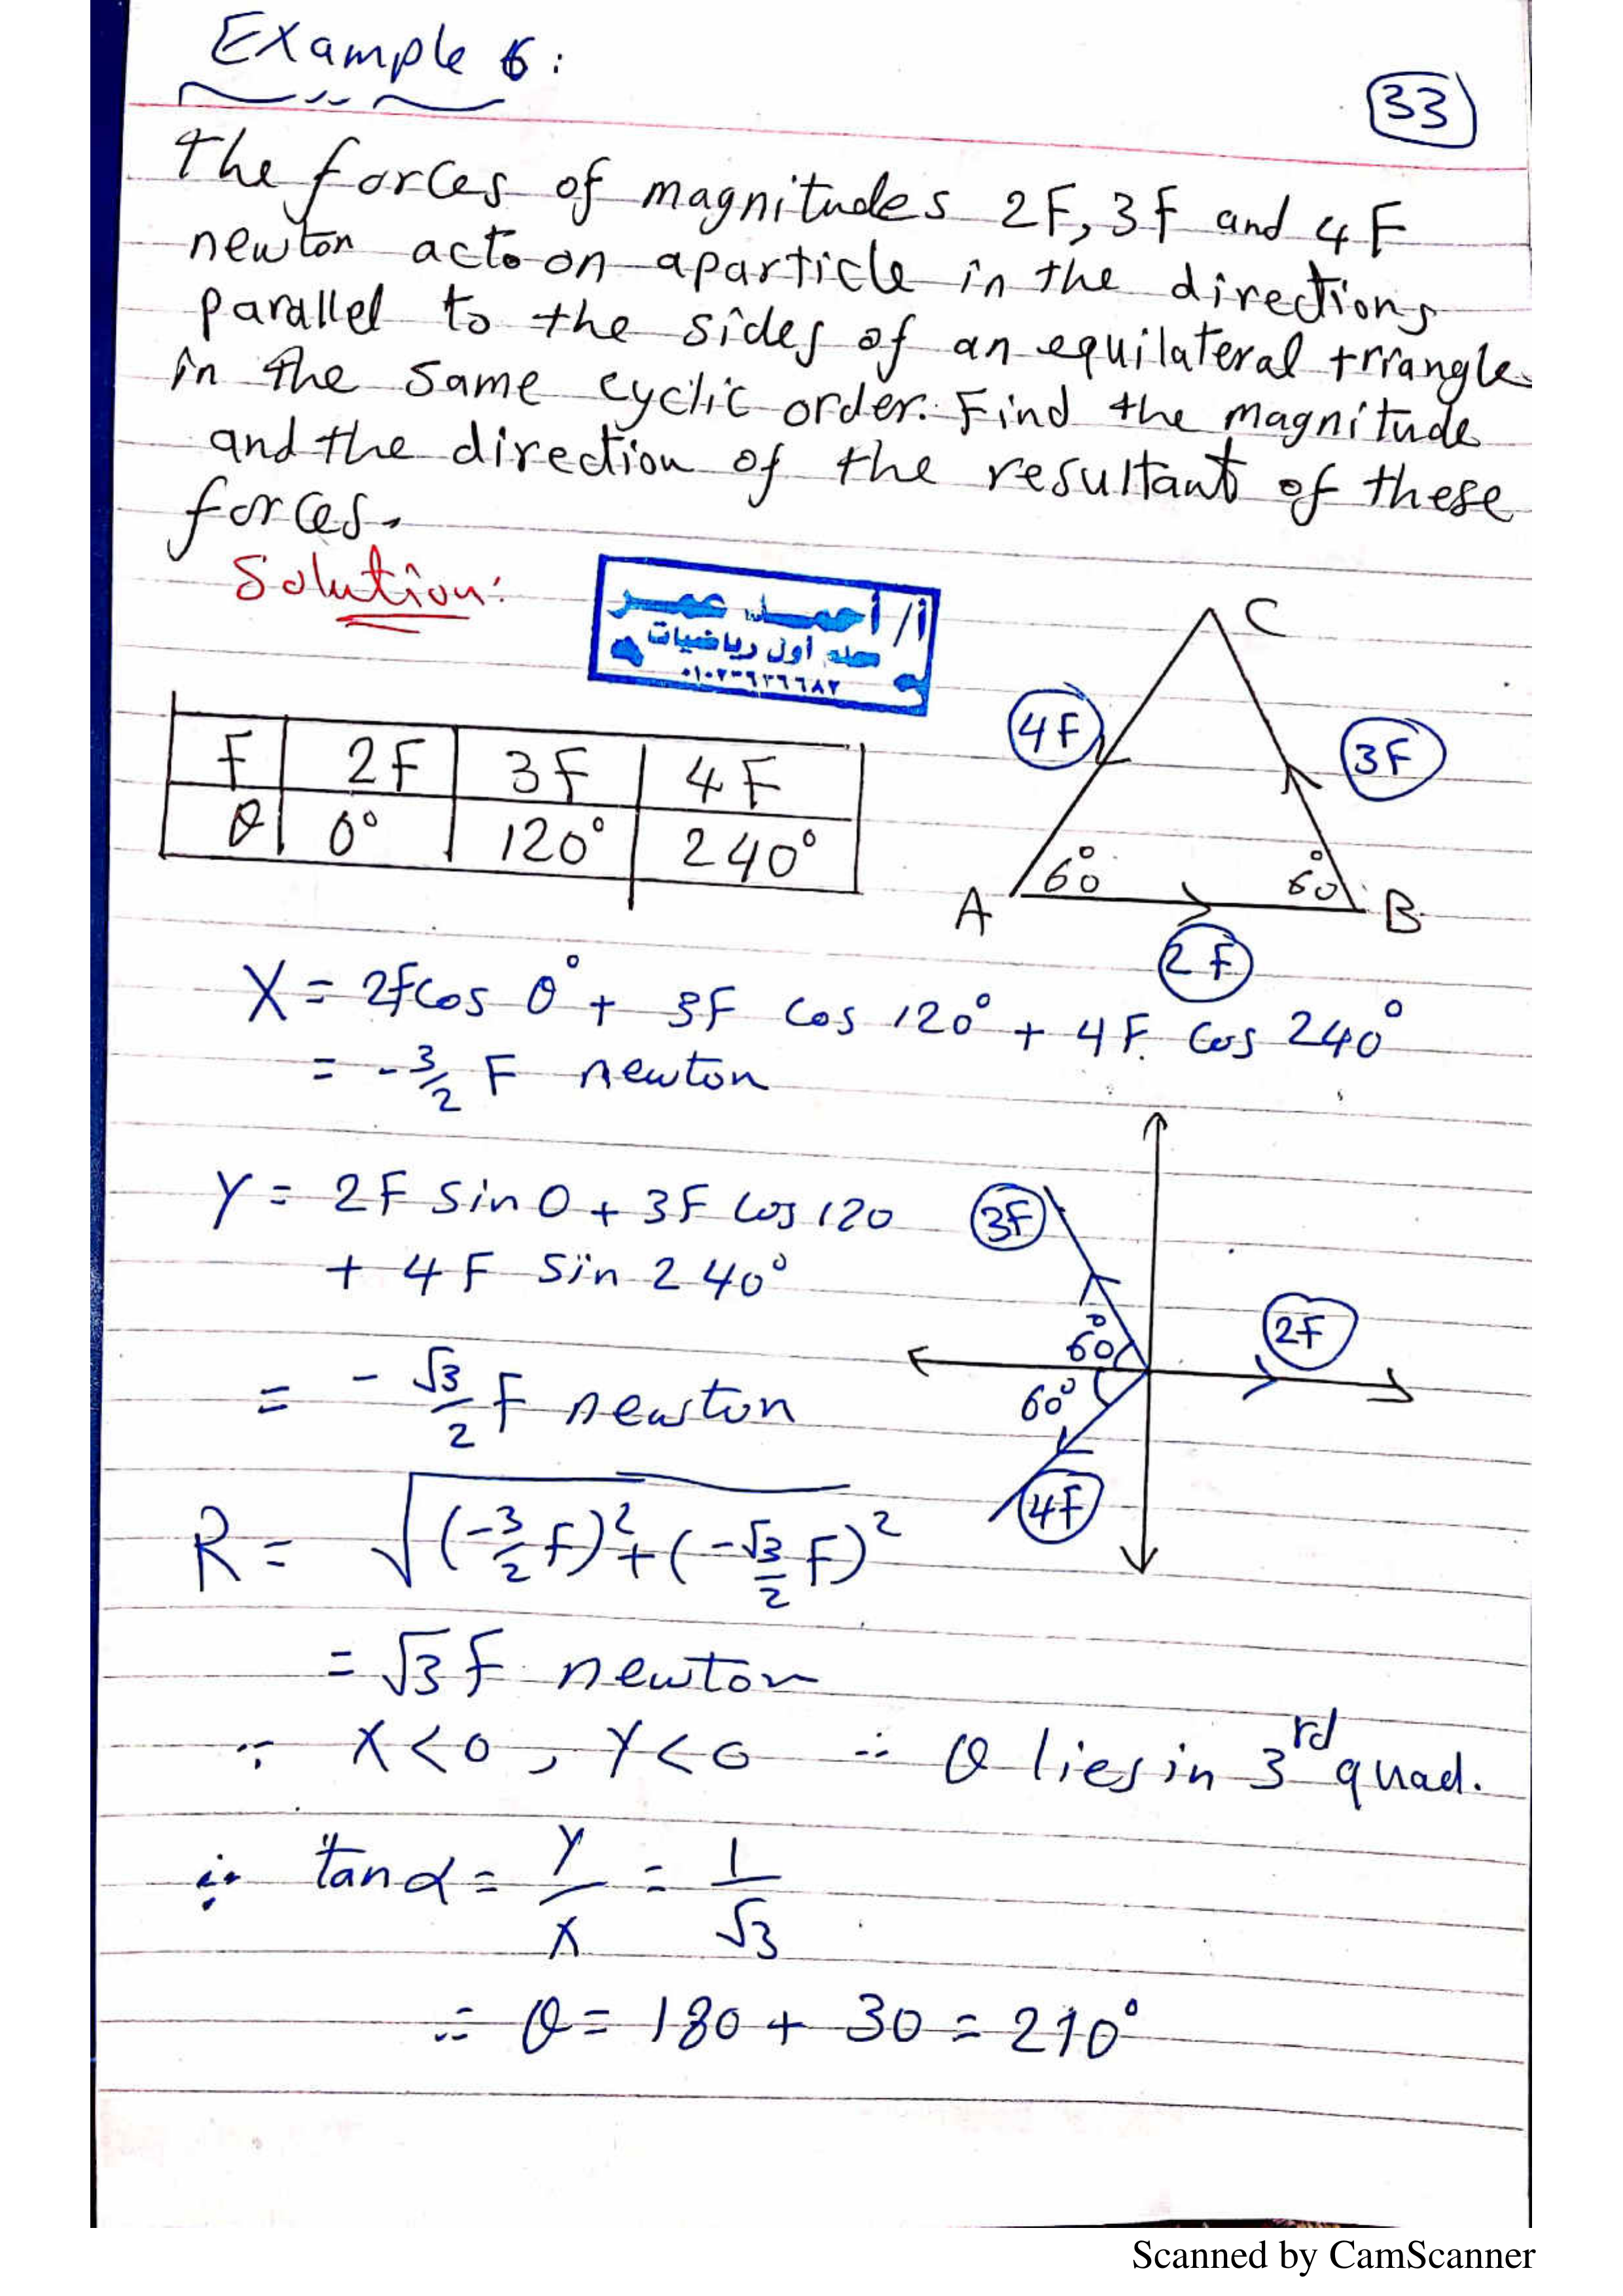 Example 6:
33
The forces of magnitudes 2F, 3F and 4F
newton acts on a particle in the directions
parallel to the sides of an equilateral triangle
in the same cyclic order. Find the magnitude
and the direction of the resultant of these
forces.
Solution:
أ/ أحمد عمر
معلم أول رياضيات
C
4F
3F
A
60°
60°
B
2F
F 2F 3F 4F
θ 0° 120° 240°
X = 2F cos 0° + 3F cos 120° + 4F. cos 240°
= -3/2 F newton
Y = 2F sin 0 + 3F cos 120
+ 4F sin 240°
= -√3/2 F newton
3F
60°
2F
60°
4F
R = √((-3/2 F)² + (-√3/2 F)²)
= √3 F newton
∵ X < 0 , Y < 0 ∴ θ lies in 3rd quad.
∵ tan α = Y/X = 1/√3
∴ θ = 180 + 30 = 210°
Scanned by CamScanner